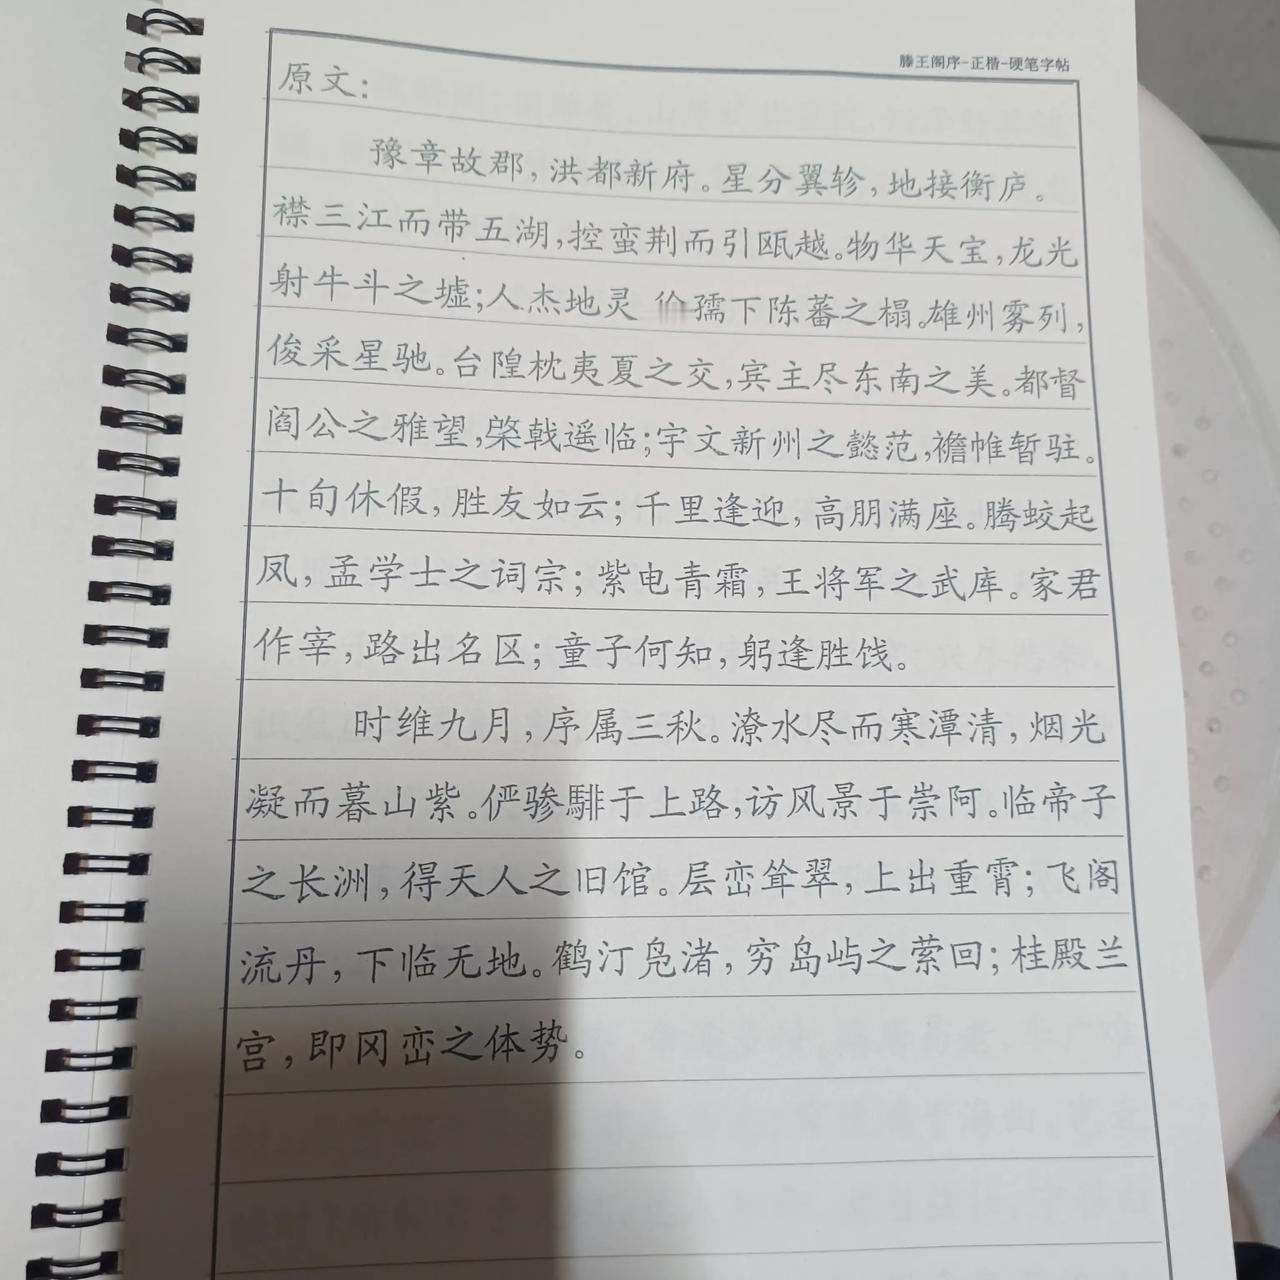 滕王阁序-正楷-硬笔字帖
原文：
豫章故郡，洪都新府。星分翼轸，地接衡庐。
襟三江而带五湖，控蛮荆而引瓯越。物华天宝，龙光
射牛斗之墟；人杰地灵 孺下陈蕃之榻。雄州雾列，
俊采星驰。台隍枕夷夏之交，宾主尽东南之美。都督
阎公之雅望，棨戟遥临；宇文新州之懿范，襜帷暂驻。
十旬休假，胜友如云；千里逢迎，高朋满座。腾蛟起
凤，孟学士之词宗；紫电青霜，王将军之武库。家君
作宰，路出名区；童子何知，躬逢胜饯。
时维九月，序属三秋。潦水尽而寒潭清，烟光
凝而暮山紫。俨骖騑于上路，访风景于崇阿。临帝子
之长洲，得天人之旧馆。层峦耸翠，上出重霄；飞阁
流丹，下临无地。鹤汀凫渚，穷岛屿之萦回；桂殿兰
宫，即冈峦之体势。